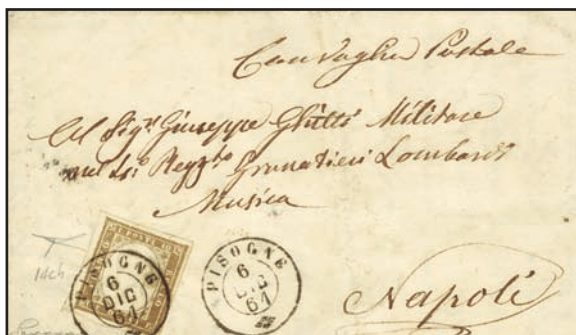 Con Vaglia Postale
Al Sigr. Giuseppe Ghitti Militare
nel 4º. Reggto Granatieri Lombardi
Musica
14ch
PISOGNE
6
DIC
61
PISOGNE
6
DIC
61
Napoli